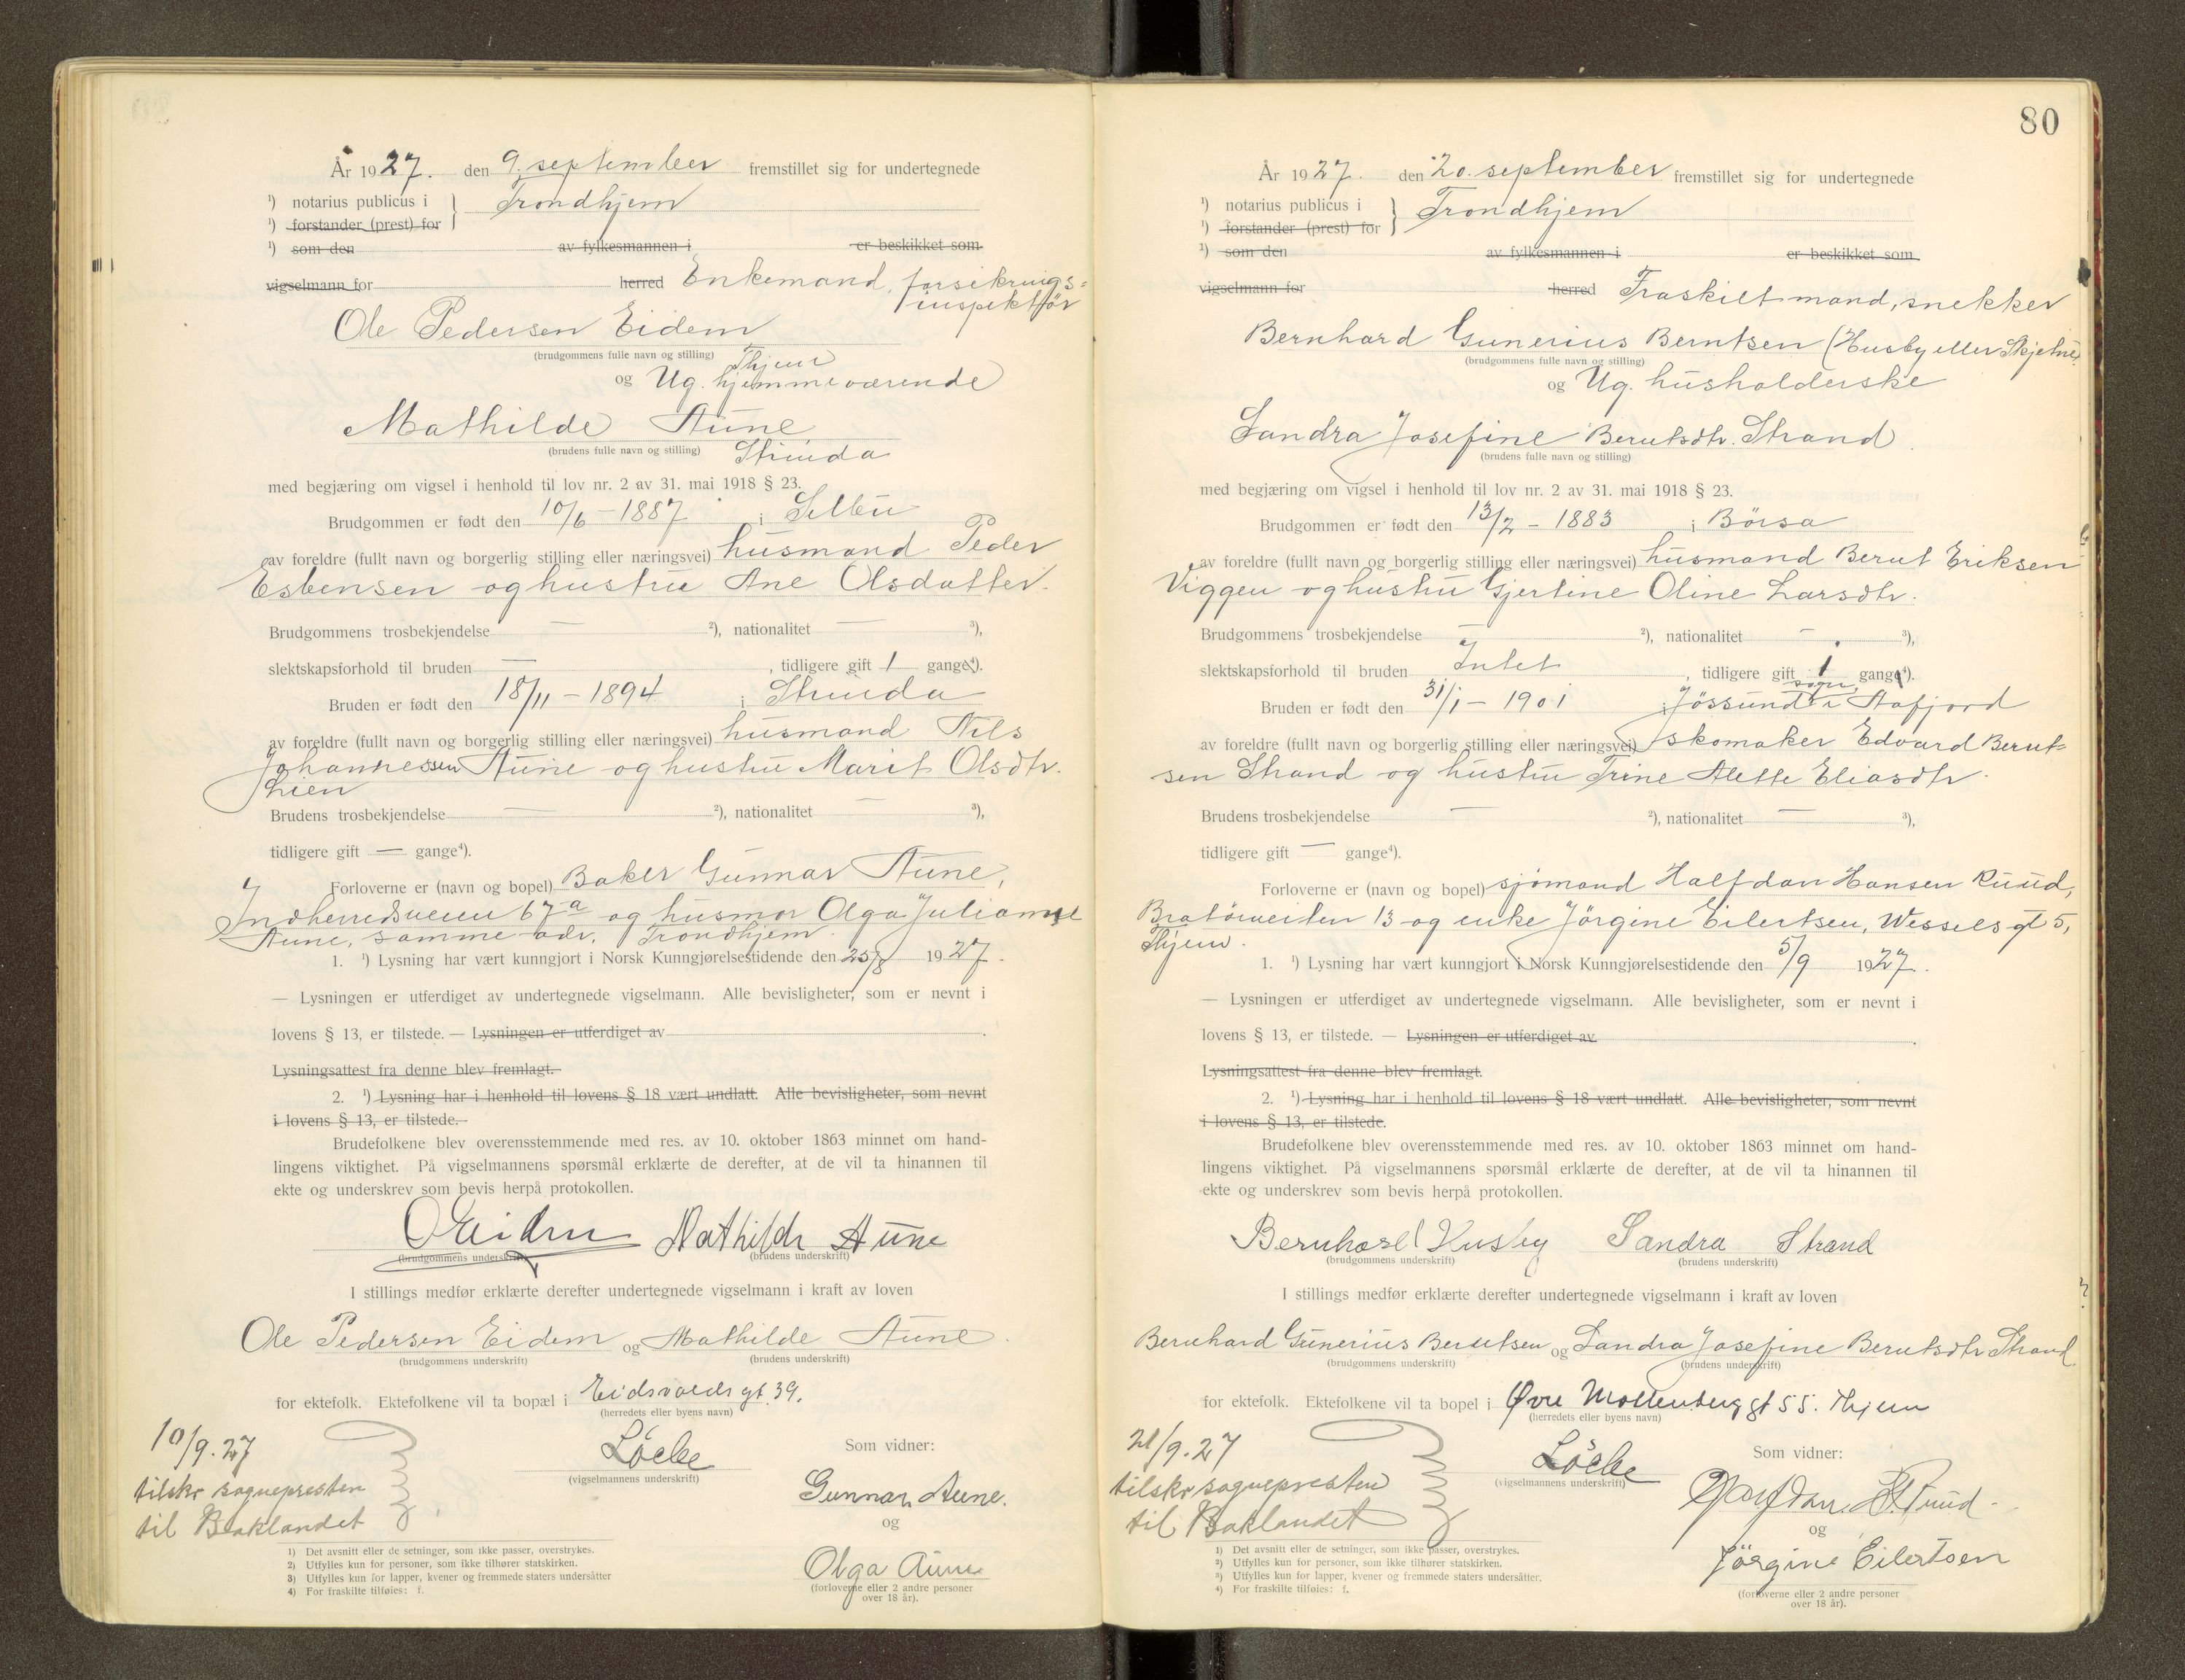 År 1927. den 9. september fremstillet sig for undertegnede
¹) notarius publicus i } Trondhjem
¹) forstander (prest) for
¹) som den av fylkesmannen i er beskikket som
vigselmann for herred Enkemand, forsikrings=
inspektør
Ole Pedersen Eidem
(brudgommens fulle navn og stilling) Thjem
og Ug. hjemmeværende
Mathilde Aune
(brudens fulle navn og stilling) Strinda
med begjæring om vigsel i henhold til lov nr. 2 av 31. mai 1918 § 23.
Brudgommen er født den 10/6 – 1887 i Selbu
av foreldre (fullt navn og borgerlig stilling eller næringsvei) husmand Peder
Esbensen og hustru Ane Olsdatter.
Brudgommens trosbekjendelse — ²), nationalitet — ³),
slektskapsforhold til bruden — , tidligere gift 1 gange⁴).
Bruden er født den 18/11 – 1894 i Strinda
av foreldre (fullt navn og borgerlig stilling eller næringsvei) husmand Nils
Johannessen Aune og hustru Marit Olsdtr.
Lien
Brudens trosbekjendelse — ²), nationalitet — ³),
tidligere gift — gange⁴).
Forloverne er (navn og bopel) Baker Gunnar Aune,
Indherredsveien 67a og husmor Olga Julianne
Aune, samme adr. Trondhjem.
1. ¹) Lysning har vært kunngjort i Norsk Kunngjørelsestidende den 25/8 1927.
— Lysningen er utferdiget av undertegnede vigselmann. Alle bevisligheter, som er nevnt i
lovens § 13, er tilstede. — Lysningen er utferdiget av .
Lysningsattest fra denne blev fremlagt.
2. ¹) Lysning har i henhold til lovens § 18 vært undlatt. Alle bevisligheter, som nevnt
i lovens § 13, er tilstede.
Brudefolkene blev overensstemmende med res. av 10. oktober 1863 minnet om hand-
lingens viktighet. På vigselmannens spørsmål erklærte de derefter, at de vil ta hinannen til
ekte og underskrev som bevis herpå protokollen.
O Eidem Mathilde Aune
(brudgommens underskrift) (brudens underskrift)
I stillings medfør erklærte derefter undertegnede vigselmann i kraft av loven
Ole Pedersen Eidem og Mathilde Aune.
(brudgommens underskrift) (brudens underskrift)
for ektefolk. Ektefolkene vil ta bopæl i Eidsvolds gt. 39.
(herredets eller byens navn)
10/9.27
tilskr sognepresten
til Baklandet
Löcke
(vigselmannens underskrift)
Som vidner:
Gunnar Aune.
og
Olga Aune
(forloverne eller 2 andre personer
over 18 år).
1) Det avsnitt eller de setninger, som ikke passer, overstrykes.
2) Utfylles kun for personer, som ikke tilhører statskirken.
3) Utfylles kun for lapper, kvener og fremmede staters undersåtter
4) For fraskilte tilføies: f.
80
År 1927. den 20. september fremstillet sig for undertegnede
¹) notarius publicus i } Trondhjem
¹) forstander (prest) for
¹) som den av fylkesmannen i er beskikket som
vigselmann for herred Fraskilt mand, snekker
Bernhard Gunerius Berntsen (Husby eller Skjelne)
(brudgommens fulle navn og stilling)
og Ug. husholderske
Sandra Josefine Berntsdtr. Strand
(brudens fulle navn og stilling)
med begjæring om vigsel i henhold til lov nr. 2 av 31. mai 1918 § 23.
Brudgommen er født den 13/2 – 1883 i Börsa
av foreldre (fullt navn og borgerlig stilling eller næringsvei) husmand Bernt Eriksen
Viggen og hustru Gjertine Oline Larsdtr.
Brudgommens trosbekjendelse — ²), nationalitet — ³),
slektskapsforhold til bruden Intet , tidligere gift 1 gange⁴).
Bruden er født den 31/1 – 1901 i Jössund sogn i Aafjord
av foreldre (fullt navn og borgerlig stilling eller næringsvei) skomaker Edvard Bernt=
sen Strand og hustru Trine Alette Eliasdtr.
Brudens trosbekjendelse — ²), nationalitet — ³),
tidligere gift — gange⁴).
Forloverne er (navn og bopel) sjömand Halfdan Hansen Ruud,
Bratörveiten 13 og enke Jörgine Eilertsen, Wessels gt 5,
Thjem.
1. ¹) Lysning har vært kunngjort i Norsk Kunngjørelsestidende den 5/9 1927.
— Lysningen er utferdiget av undertegnede vigselmann. Alle bevisligheter, som er nevnt i
lovens § 13, er tilstede. — Lysningen er utferdiget av .
Lysningsattest fra denne blev fremlagt.
2. ¹) Lysning har i henhold til lovens § 18 vært undlatt. Alle bevisligheter, som nevnt
i lovens § 13, er tilstede.
Brudefolkene blev overensstemmende med res. av 10. oktober 1863 minnet om hand-
lingens viktighet. På vigselmannens spørsmål erklærte de derefter, at de vil ta hinannen til
ekte og underskrev som bevis herpå protokollen.
Bernhard Husby Sandra Strand
(brudgommens underskrift) (brudens underskrift)
I stillings medfør erklærte derefter undertegnede vigselmann i kraft av loven
Bernhard Gunerius Berntsen og Sandra Josefine Berntsdtr Strand
(brudgommens underskrift) (brudens underskrift)
for ektefolk. Ektefolkene vil ta bopel i Øvre Mollenberg gt 55. Thjem
(herredets eller byens navn)
21/9.27
tilskr sognepresten
til Baklandet
Löcke
(vigselmannens underskrift)
Som vidner:
Halfdan H. Ruud.
og
Jörgine Eilertsen
(forloverne eller 2 andre personer
over 18 år).
¹) Det avsnitt eller de setninger, som ikke passer, overstrykes.
²) Utfylles kun for personer, som ikke tilhører statskirken.
³) Utfylles kun for lapper, kvener og fremmede staters undersåtter.
⁴) For fraskilte tilføies: f.